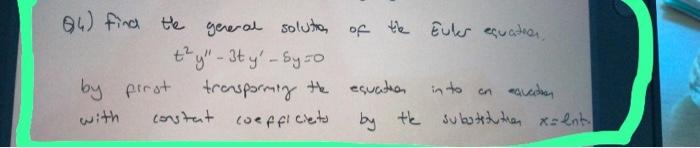 Q4) Find the general solution of the Euler equation.
t²y'' - 3ty' - 5y=0
by first transforming the equation into an equation
with constant coefficients by the substitution x=lnt.